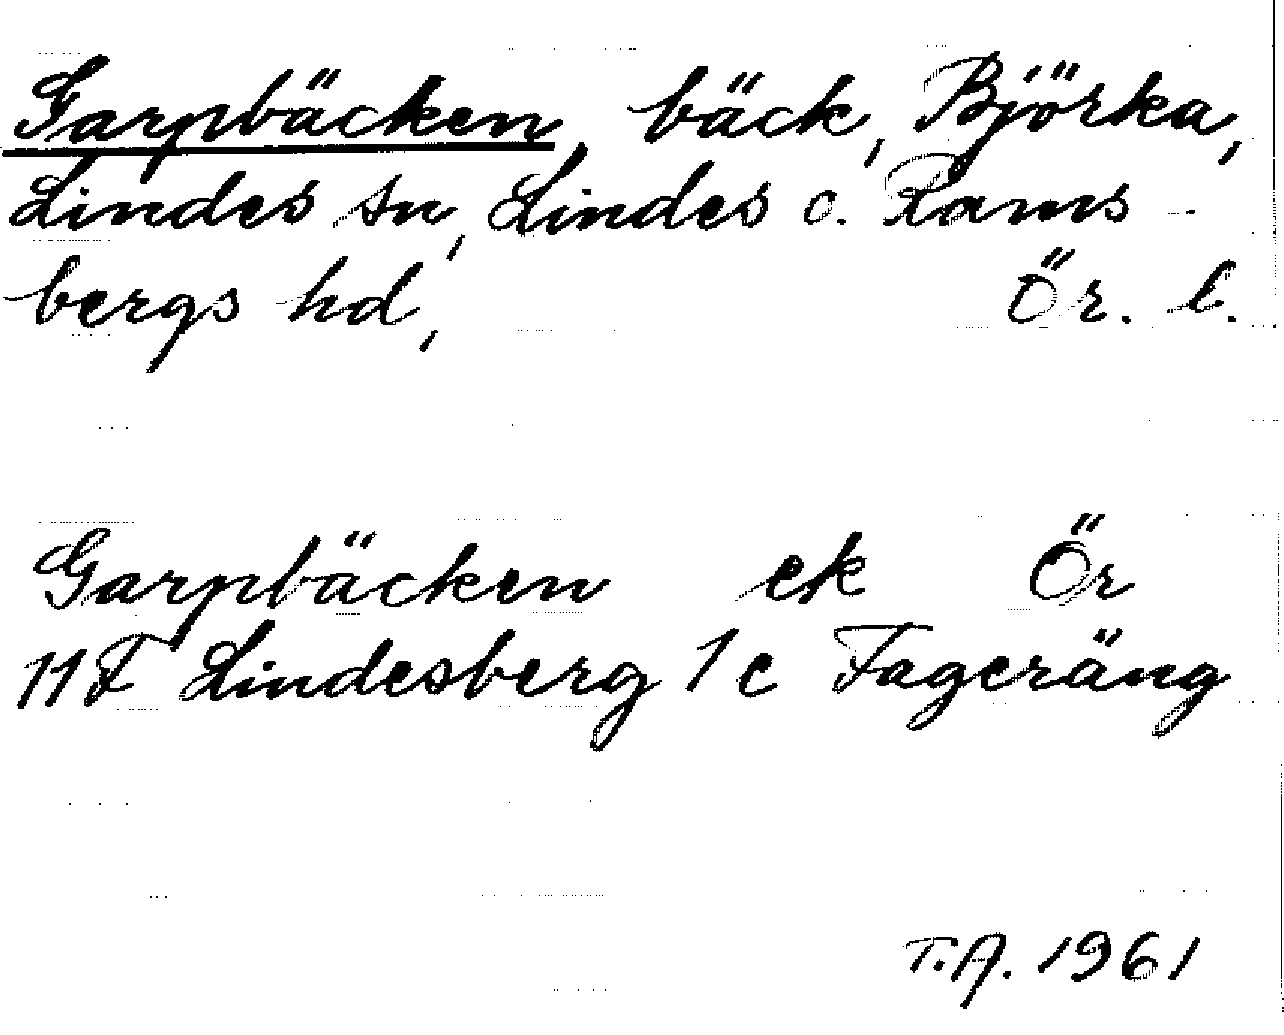 Garpbäcken, bäck, Björka,
Lindes sn, Lindes o. Rams-
bergs hd, Ör. l.
Garpbäcken ek Ör
11F Lindesberg 1c Fageräng
T.A. 1961